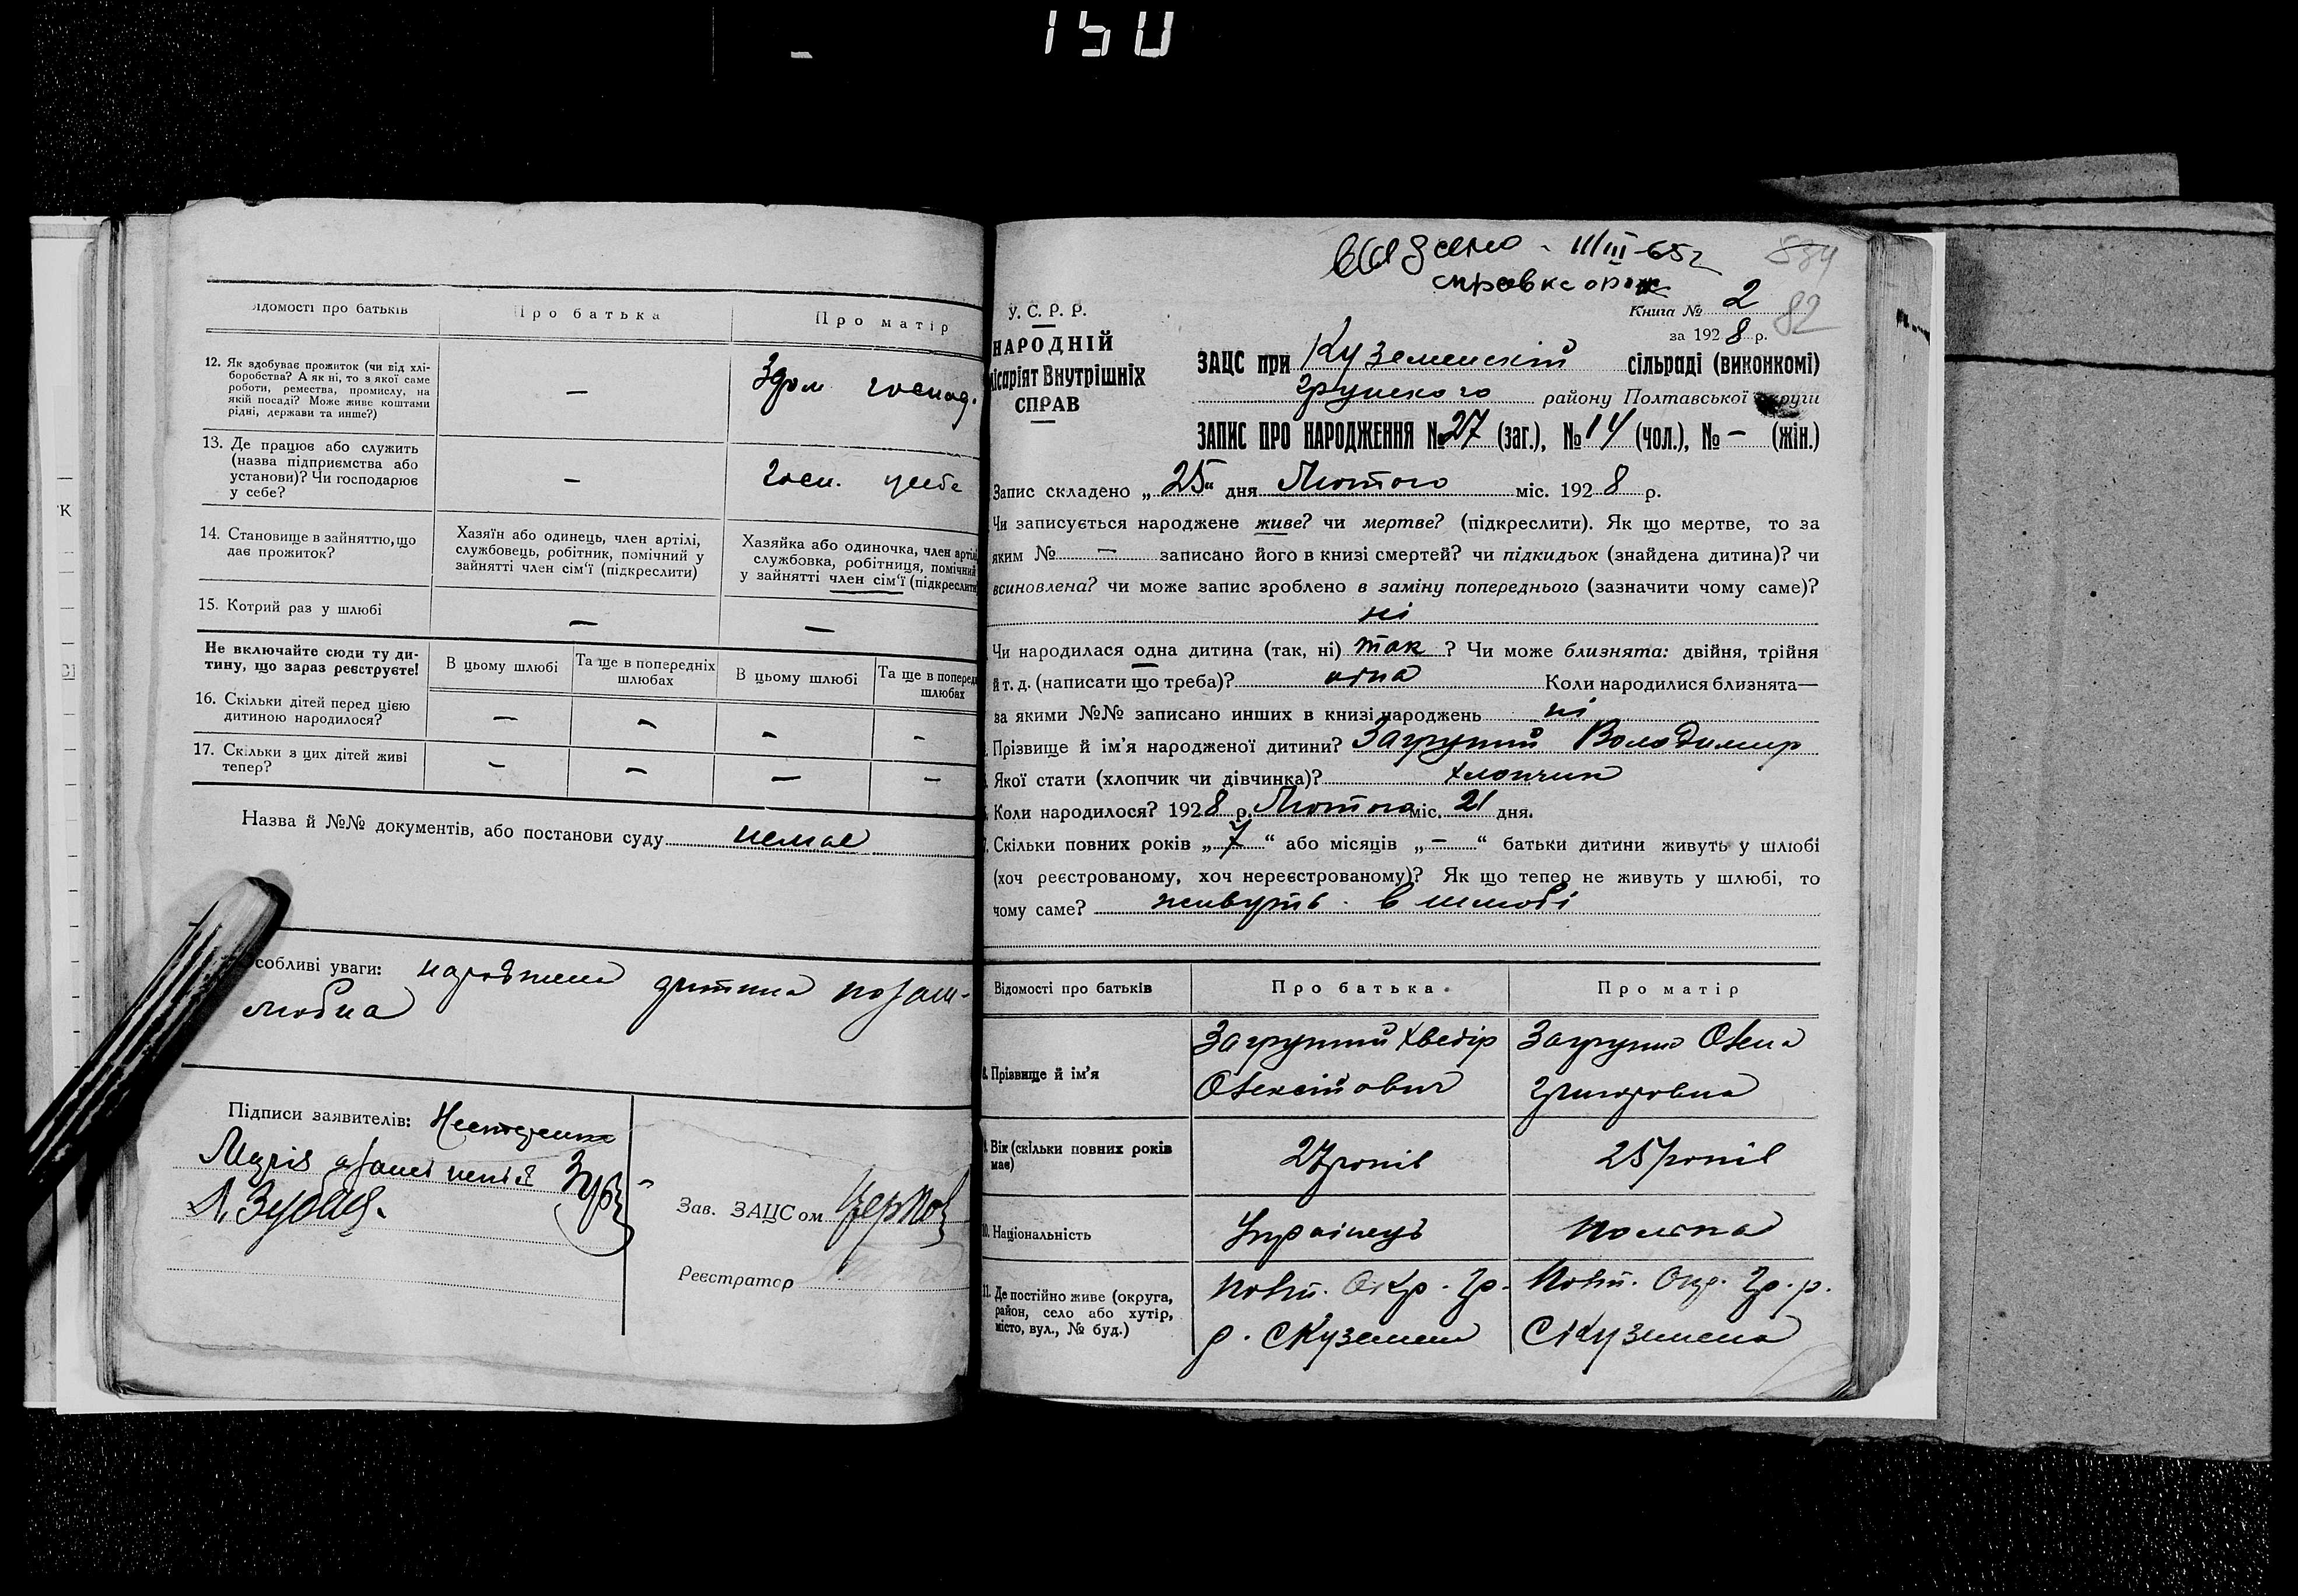 150
Відомості про батьків
Про батька
Про матір
12. Як здобуває прожиток (чи від хлі-
боробства? А як ні, то з якої саме
роботи, ремества, промислу, на
якій посаді? Може живе коштами
рідні, держави та инше?)
—
Здом господ.
13. Де працює або служить
(назва підприємства або
установи)? Чи господарює
у себе?
—
Госп. у себе
14. Становище в зайняттю, що
дає прожиток?
Хазяїн або одинець, член артілі,
службовець, робітник, помічний у
зайнятті член сім'ї (підкреслити)
Хазяйка або одиночка, член артілі
службовка, робітниця, помічний
у зайнятті член сім'ї (підкреслити
15. Котрий раз у шлюбі
—
—
Не включайте сюди ту ди-
тину, що зараз реєструєте!
В цьому шлюбі
Та ще в попередніх
шлюбах
В цьому шлюбі
Та ще в поперед
шлюбах
16. Скільки дітей перед цією
дитиною народилося?
— — — —
17. Скільки з цих дітей живі
тепер?
— — — —
Назва й №№ документів, або постанови суду немає
собливі уваги: народжена дитина позаш-
любна
Підписи заявителів:
Марія
Л. Зубаня.
Зав. ЗАЦСом
Реєстратор
видано - 11/III-65г
справка о рож
584
82
У. С. Р. Р.
НАРОДНІЙ
ісаріят Внутрішніх
СПРАВ
Книга № 2
за 1928 р.
ЗАЦС при Куземенскій сільраді (виконкомі)
Грунского району Полтавської округи
ЗАПИС ПРО НАРОДЖЕННЯ № 27 (заг.), № 14 (чол.), № — (жін.)
Запис складено „25“ дня Лютого міс. 1928 р.
Чи записується народжене живе? чи мертве? (підкреслити). Як що мертве, то за
яким № — записано його в книзі смертей? чи підкидьок (знайдена дитина)? чи
всиновлена? чи може запис зроблено в заміну попереднього (зазначити чому саме)?
ні
Чи народилася одна дитина (так, ні) так ? Чи може близнята: двійня, трійня
й т. д. (написати що треба)? одна Коли народилися близнята—
за якими №№ записано инших в книзі народжень ні
Прізвище й ім'я народженої дитини? Загрупий Володимир
Якої стати (хлопчик чи дівчинка)? хлопчик
Коли народилося? 1928 р. Лютого міс. 21 дня.
Скільки повних років „7“ або місяців „—“ батьки дитини живуть у шлюбі
(хоч реєстрованому, хоч нереєстрованому)? Як що тепер не живуть у шлюбі, то
чому саме? живуть в шлюбі
Відомості про батьків
Про батька
Про матір
8. Прізвище й ім'я
Загрупий Хведір
Олексійович
Загрупа Олена
Григоровна
9. Вік (скільки повних років
має)
27 років
25 років
10. Національність
Українець
полька
11. Де постійно живе (округа,
район, село або хутір,
місто, вул., № буд.)
Полт. Окр. Гр.
р. С Куземен
Полт. Окр. Гр. р.
С Куземена